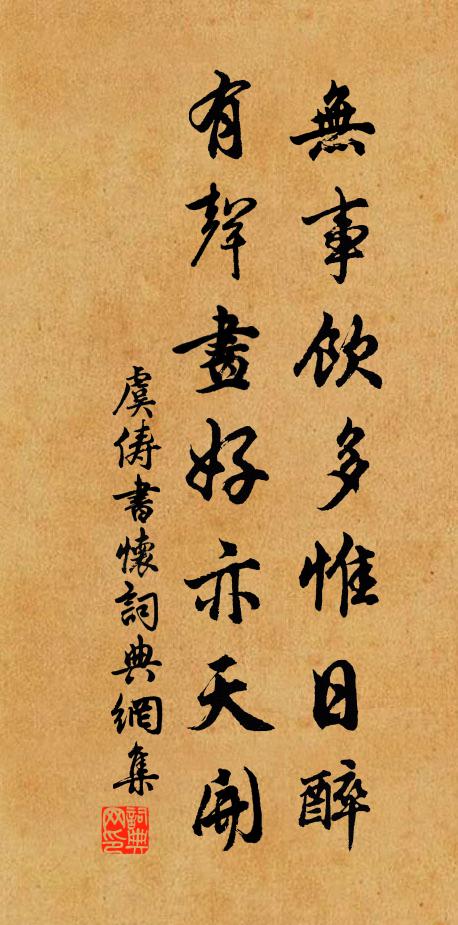 無事飲多惟日醉
有聲畫好亦天開
虞儔書懷詞典網集
詞典
网印